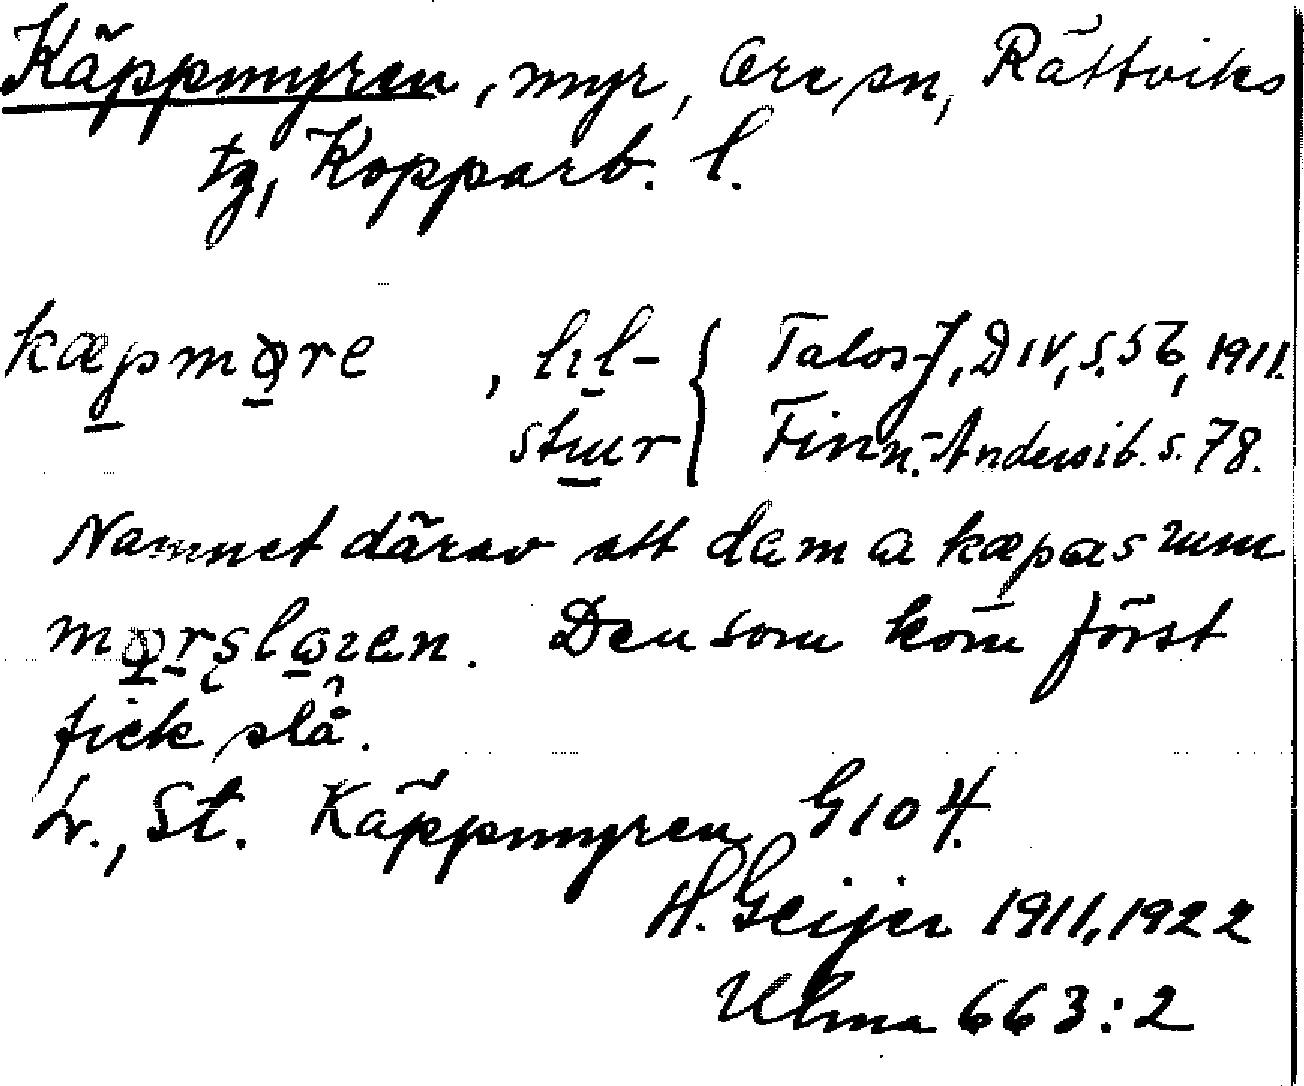 Käppmyren, myr, Ore sn, Rättviks
tg, Kopparb. l.
kæpmøre , lıl- { Talos-J, D IV, s. 56, 1911.
stuur { Finn.-Andersib. s. 78.
Namnet därav att dem a kæpas um
mørşlǫɀen. Den som kom först
fick slå.
L., St. Käppmyren G104.
H. Geijer 1911, 1922
Ulma 663:2